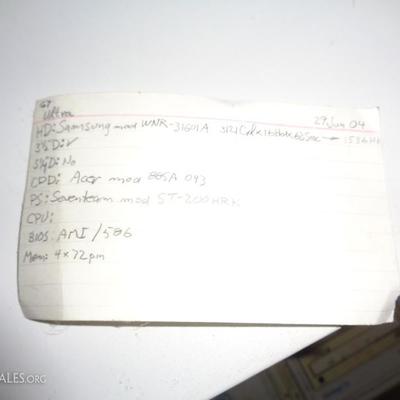 Ultra
29 Jun 04
HD: Samsung mod WNR-31601A
3½D: ✓
5¼D: No
CDD: Acer mod 665A 043
PS: Seventeam mod ST-200HRK
CPU:
BIOS: AMI/586
Mem: 4×72pin
ALES.ORG